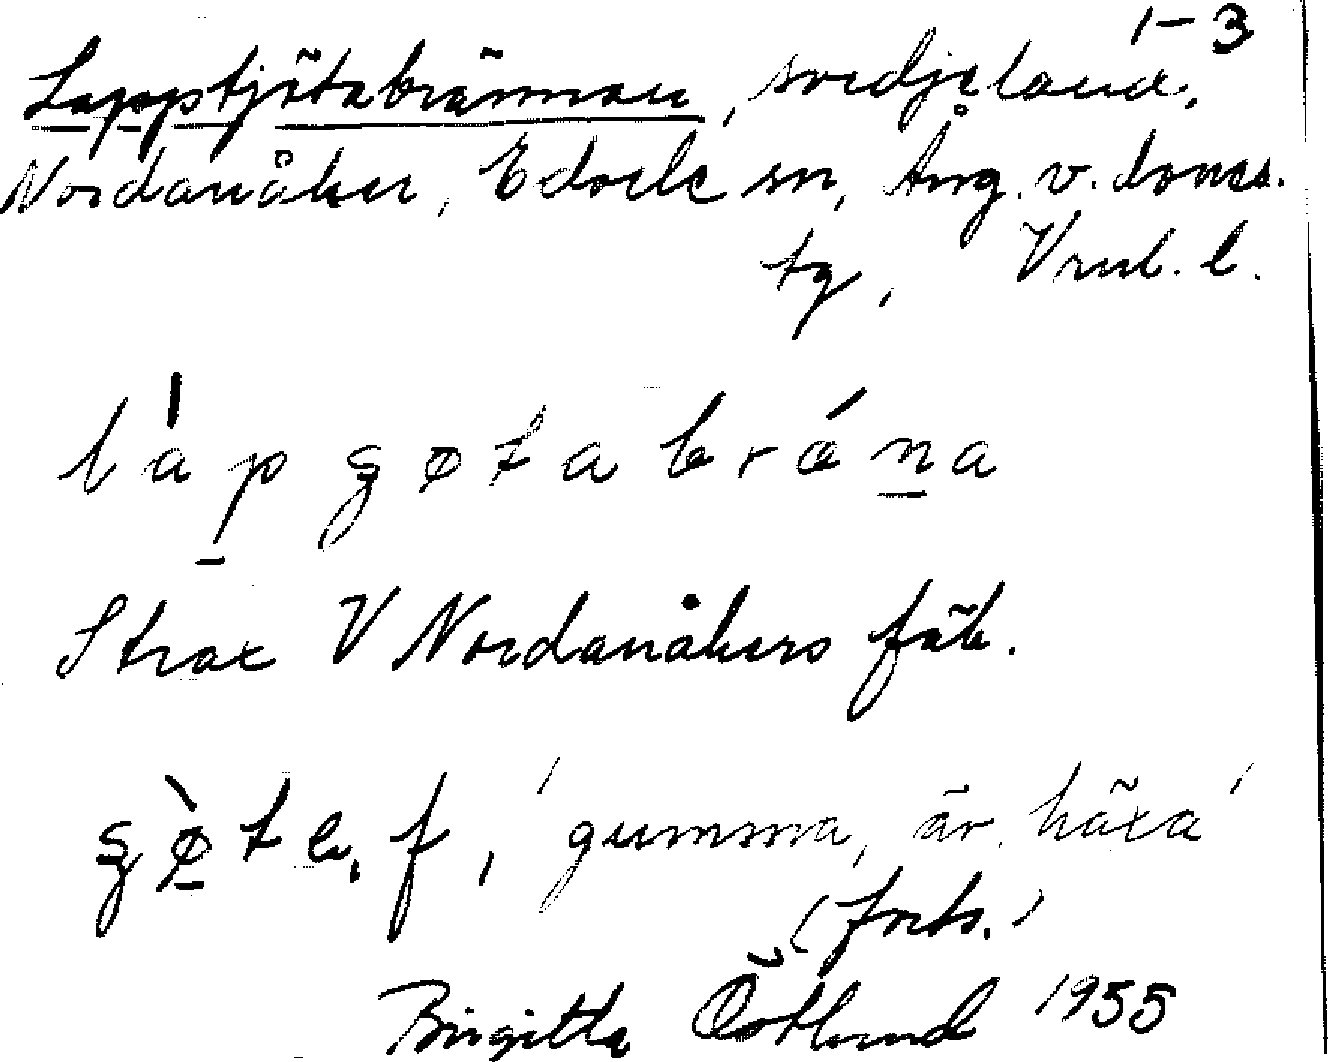 1-3
Lapptjötabrännan, svedjeland,
Nordanåker, Edsele sn, Ång. v. doms.
tg, Vml. l.
làpʂøtabrǽna
Strax V Nordanåkers fäb.
ʂø̀te, f, 'gumma, äv. häxa'
(forts.)
Birgitta Östlund 1955